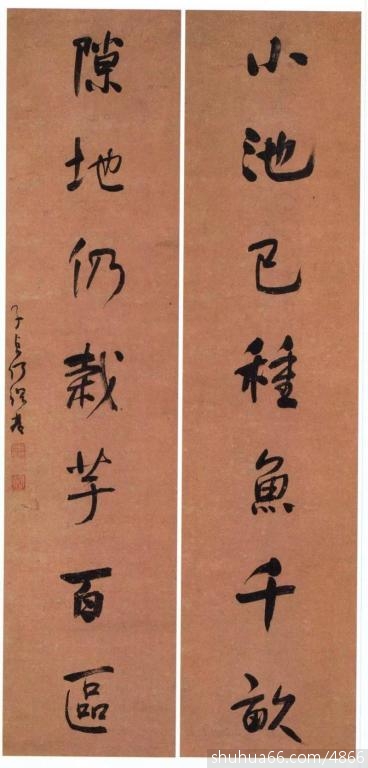 小池已種魚千畝
隙地仍栽芋百區
子貞何紹基
shuhua66.com/4866